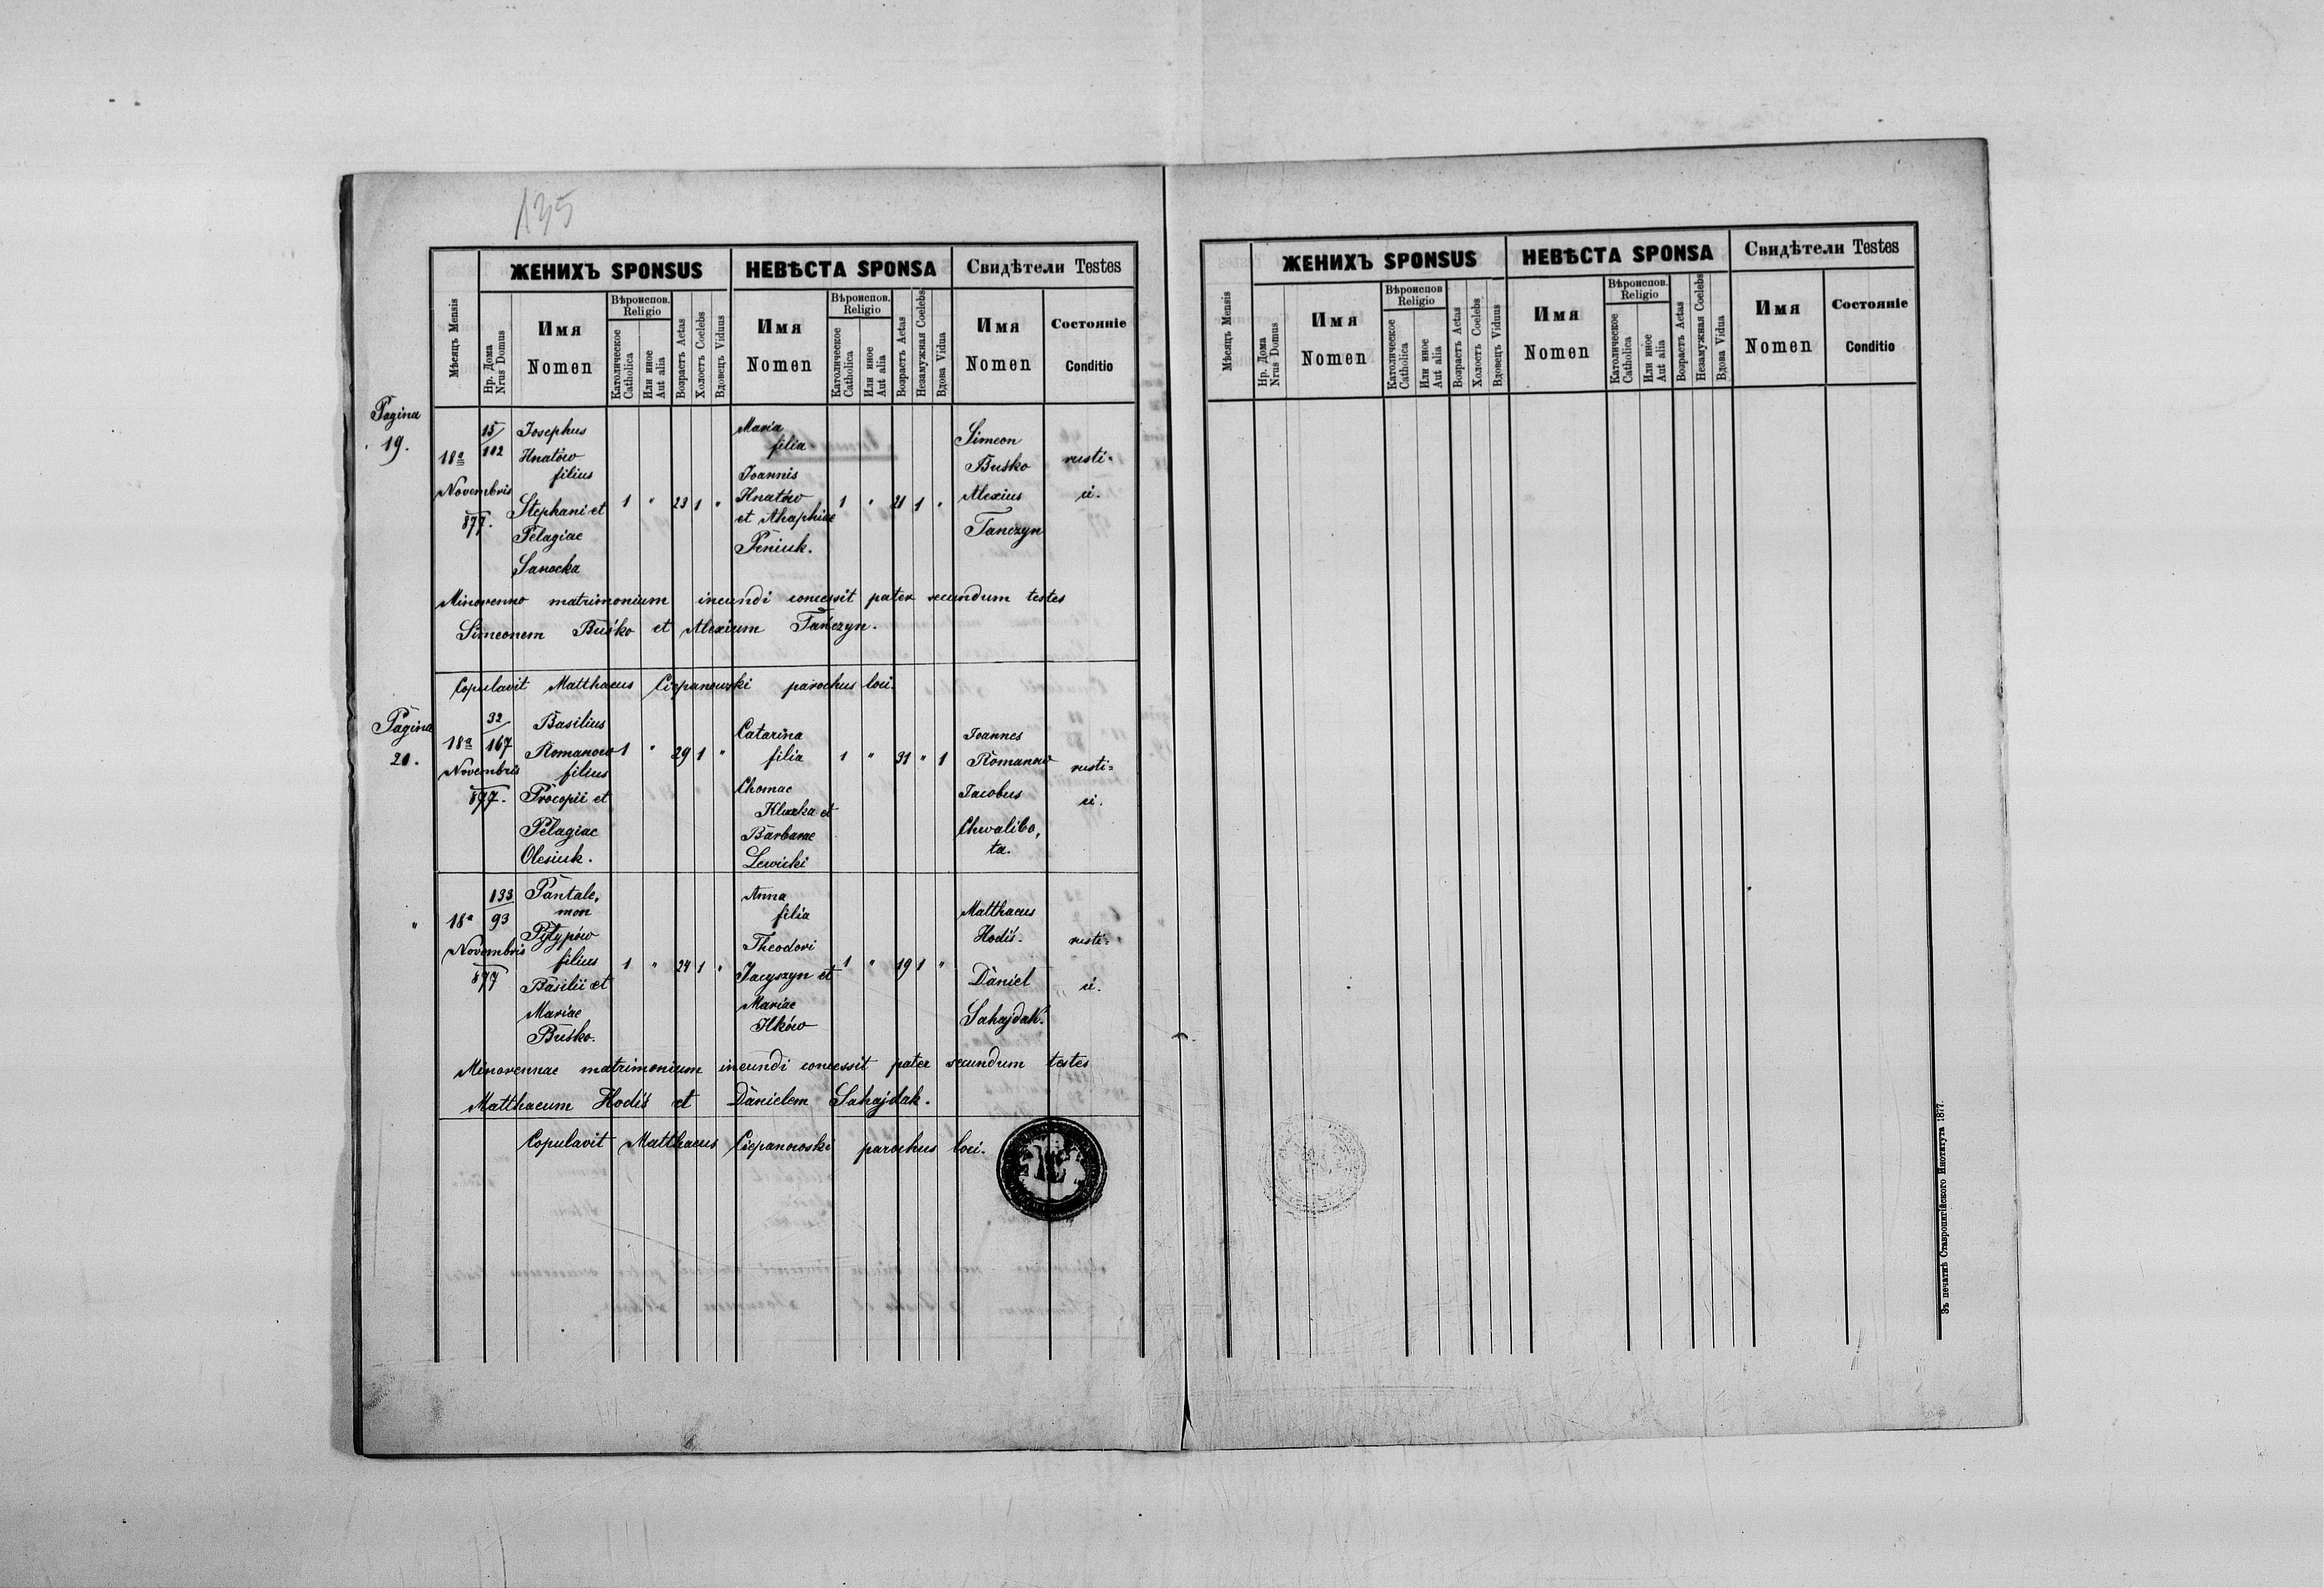 135
ЖЕНИХЪ SPONSUS
НЕВѢСТА SPONSA
Свидѣтели Testes
Мѣсяцъ Mensis
Нр. Дома
Nrus Domus
Имя
Nomen
Вѣроиспов.
Religio
Католическое
Catholica
Или иное
Aut alia
Возрастъ Aetas
Холостъ Coelebs
Вдовецъ Viduus
Имя
Nomen
Вѣроиспов.
Religio
Католическое
Catholica
Или иное
Aut alia
Возрастъ Aetas
Незамужная Coelebs
Вдова Vidua
Имя
Nomen
Состояніе
Conditio
Pagina
19.
18a
Novembris
877.
15/
112
Josephus
Hnatów
filius
Stephani et
Pelagiae
Sanocka
1 " 23 1 "
Maria
filia
Joannis
Hnatów
et Ahaphiae
Peniuk.
1 " 21 1 "
Simeon
Buśko
Alexius
Tanczyn
rusti=
ci.
Minorenno matrimonium ineundi concessit pater secundum testes
Simeonem Buśko et Alexium Tańczyn.
Copulavit Matthaeus Ciepanowski parochus loci.
Pagina
20.
18a
Novembris
877.
32/
167
Basilius
Romanow
filius
Procopii et
Pelagiae
Olesiuk.
1 " 29 1 "
Catarina
filia
Chomae
Kluzka et
Barbarae
Lewicki
1 " 31 " 1
Joannes
Romanow
Jacobus
Chwalibo,
ta.
rusti=
ci.
"
18a
Novembris
877
133
93
Pantale,
mon
Pylypów
filius
Basilii et
Mariae
Buśko.
1 " 24 1 "
Anna
filia
Theodori
Jacyszyn et
Mariae
Ilków
1 " 19 1 "
Matthaeus
Hodiś.
Daniel
Sahajdak.
rusti=
ci.
Minorennae matrimonium ineundi concessit pater secundum testes
Matthaeum Hodiś et Danielem Sahajdak.
Copulavit Matthaeus Ciepanowski parochus loci.
ЖЕНИХЪ SPONSUS
НЕВѢСТА SPONSA
Свидѣтели Testes
Мѣсяцъ Mensis
Нр. Дома
Nrus Domus
Имя
Nomen
Вѣроиспов
Religio
Католическое
Catholica
Или иное
Aut alia
Возрастъ Aetas
Холостъ Coelebs
Вдовецъ Viduus
Имя
Nomen
Вѣроиспов.
Religio
Католическое
Catholica
Или иное
Aut alia
Возрастъ Aetas
Незамужная Coelebs
Вдова Vidua
Имя
Nomen
Состояніе
Conditio
Зъ печатнѣ Ставропигійского Института 1877.